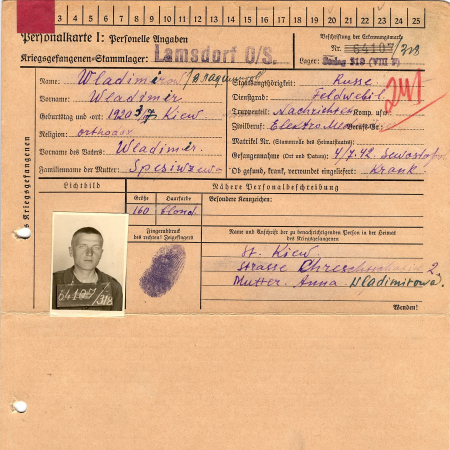 1 2 3 4 5 6 7 8 9 10 11 12 13 14 15 16 17 18 19 20 21 22 23 24 25
Personalkarte I: Personelle Angaben
Kriegsgefangenen-Stammlager: Lamsdorf O/S.
Beschriftung der Erkennungsmarke
Nr. 64107/318
Lager: Stalag 319 (VIII F)
Name: Wladimirow
Vorname: Wladimir
Geburtstag und -ort: 1920 Kiew
Religion: orthodox
Vorname des Vaters: Wladimir
Familienname der Mutter:
Staatsangehörigkeit: Russe
Dienstgrad: Feldwebel
Truppenteil: Nachrichten Komp. usw.
Zivilberuf: Berufs-Gr.:
Matrikel Nr. (Stammrolle des Heimatstaates)
Gefangennahme (Ort und Datum): 4/7.42.
Ob gesund, krank, verwundet eingeliefert: Krank
241
Kriegsgefangenen
Lichtbild
Nähere Personalbeschreibung
Größe Haarfarbe Besondere Kennzeichen:
160 blond
Fingerabdruck
des rechten! Zeigefingers
Name und Anschrift der zu benachrichtigenden Person in der Heimat
des Kriegsgefangenen
St. Kiew.
Strasse 2
Mutter. Anna. Wladimirowa.
64107/318
Wenden!